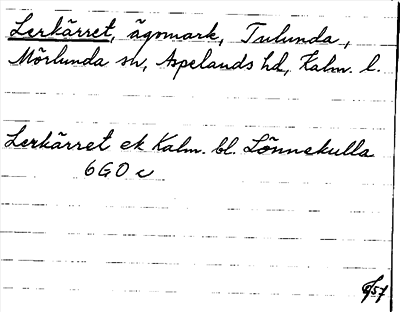 Lerkärret, ägomark, Tulunda,
Mörlunda sn, Aspelands hd, Kalm. l.
Lerkärret ek Kalm. bl. Lönnekulla
6G0c